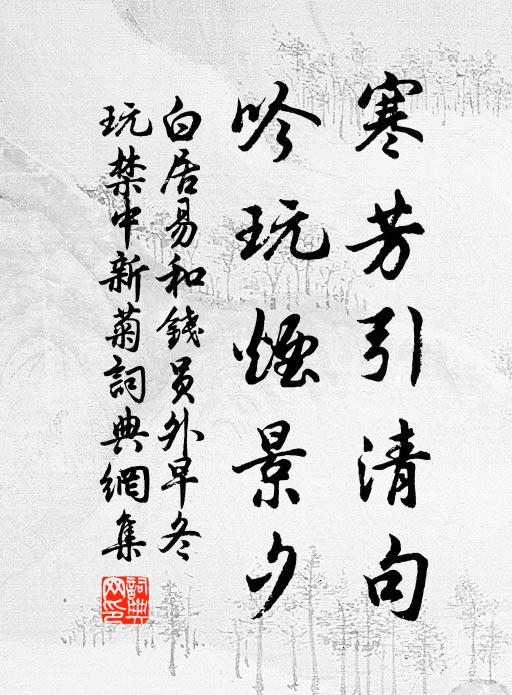 寒芳引清句
吟玩煙景夕
白居易和錢員外早冬
玩禁中新菊詞典網集
詞典網印